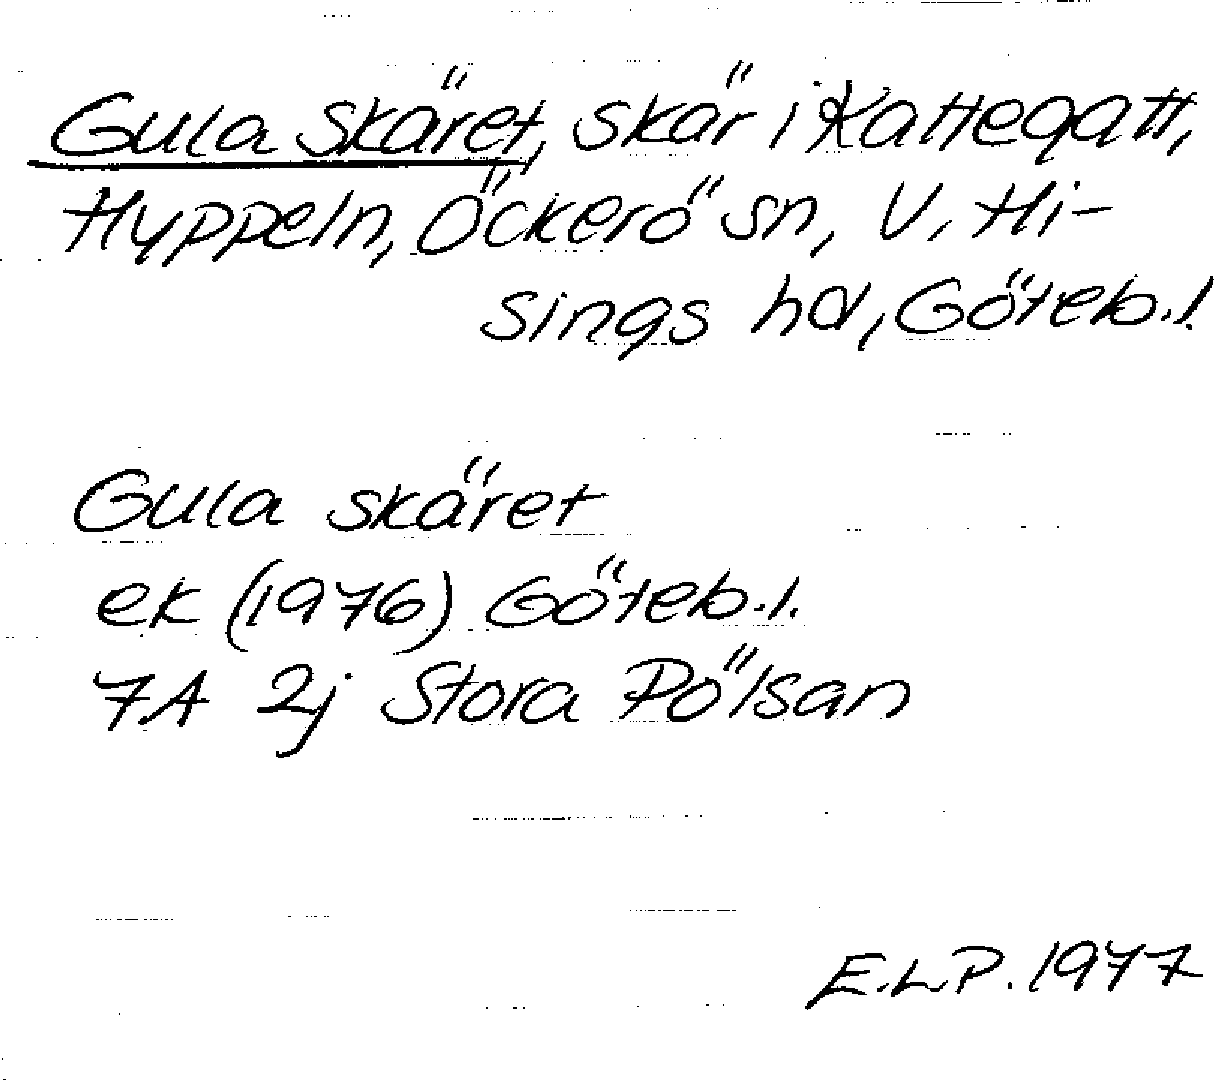 Gula skäret, skär i Kattegatt,
Hyppeln, Öckerö sn, V. Hi-
sings hd, Göteb.l.
Gula skäret
ek (1976) Göteb.l.
7A 2j Stora Pölsan
E.L.P. 1977